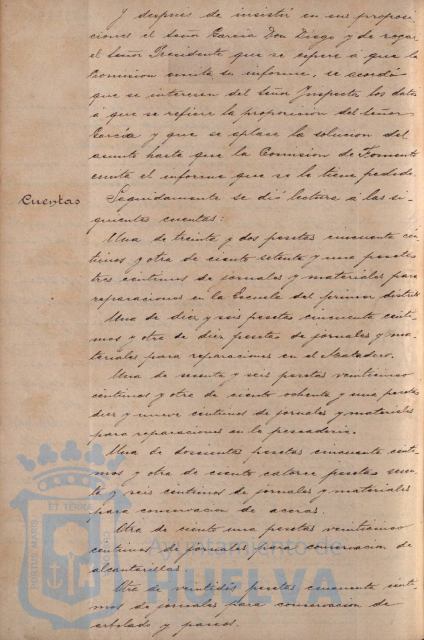 Y después de insistir en sus proposi-
ciones el Señor García Don Diego y de rogar
el Señor Presidente que se espere á que la
Comision emita su informe, se acordó
que se interesen del Señor Inspector los datos
á que se refiere la proposicion del Señor
García y que se aplace la solucion del
asunto hasta que la Comision de Fomento
emita el informe que se le tiene pedido.
Cuentas
Seguidamente se dió lectura á las si-
guientes cuentas:
Una de treinta y dos pesetas cincuenta cén-
timos y otra de ciento setenta y una pesetas
tres centimos de jornales y materiales para
reparaciones en la Escuela del primer distrito
Una de diez y seis pesetas cincuenta cénti-
mos y otra de diez pesetas de jornales y ma-
teriales para reparaciones en el Matadero.
Una de sesenta y seis pesetas veinticinco
centimos y otra de ciento ochenta y una pesetas
diez y nueve centimos de jornales y materiales
para reparaciones en la pescadería.
Una de doscientas pesetas cincuenta cénti-
mos y otra de ciento catorce pesetas sesen-
ta y seis centimos de jornales y materiales
para conservacion de aceras.
Otra de ciento una pesetas veinticinco
centimos de jornales para conservacion de
alcantarillas
Otra de veintidos pesetas cincuenta cénti-
mos de jornales para conservacion de
arbolado y paseos.
PORTUS MARIS ET TERRA CUSTODIA
Ayuntamiento de
HUELVA